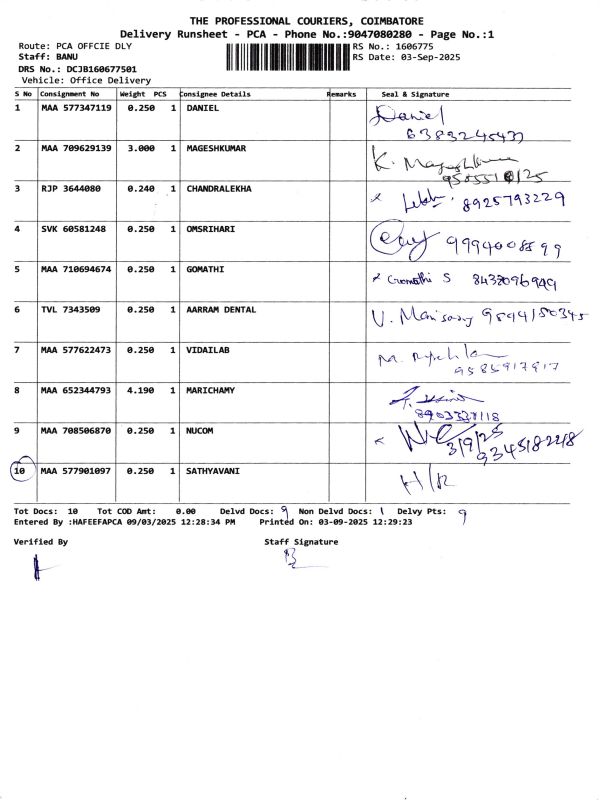 THE PROFESSIONAL COURIERS, COIMBATORE
Delivery Runsheet - PCA - Phone No.:9047080280 - Page No.:1
Route: PCA OFFCIE DLY
RS No.: 1606775
Staff: BANU
RS Date: 03-Sep-2025
DRS No.: DCJB160677501
Vehicle: Office Delivery
S No Consignment No Weight PCS Consignee Details Remarks Seal & Signature
1 MAA 577347119 0.250 1 DANIEL Daniel
2 MAA 709629139 3.000 1 MAGESHKUMAR
3 RJP 3644080 0.240 1 CHANDRALEKHA 8925793229
4 SVK 60581248 0.250 1 OMSRIHARI 9994008599
5 MAA 710694674 0.250 1 GOMATHI Gomathi S
6 TVL 7343509 0.250 1 AARRAM DENTAL
7 MAA 577622473 0.250 1 VIDAILAB
9585917917
8 MAA 652344793 4.190 1 MARICHAMY
9 MAA 708506870 0.250 1 NUCOM
3/9/25
10 MAA 577901097 0.250 1 SATHYAVANI
Tot Docs: 10 Tot COD Amt: 0.00 Delvd Docs: 9 Non Delvd Docs: 1 Delvy Pts: 9
Entered By :HAFEEFAPCA 09/03/2025 12:28:34 PM Printed On: 03-09-2025 12:29:23
Verified By Staff Signature